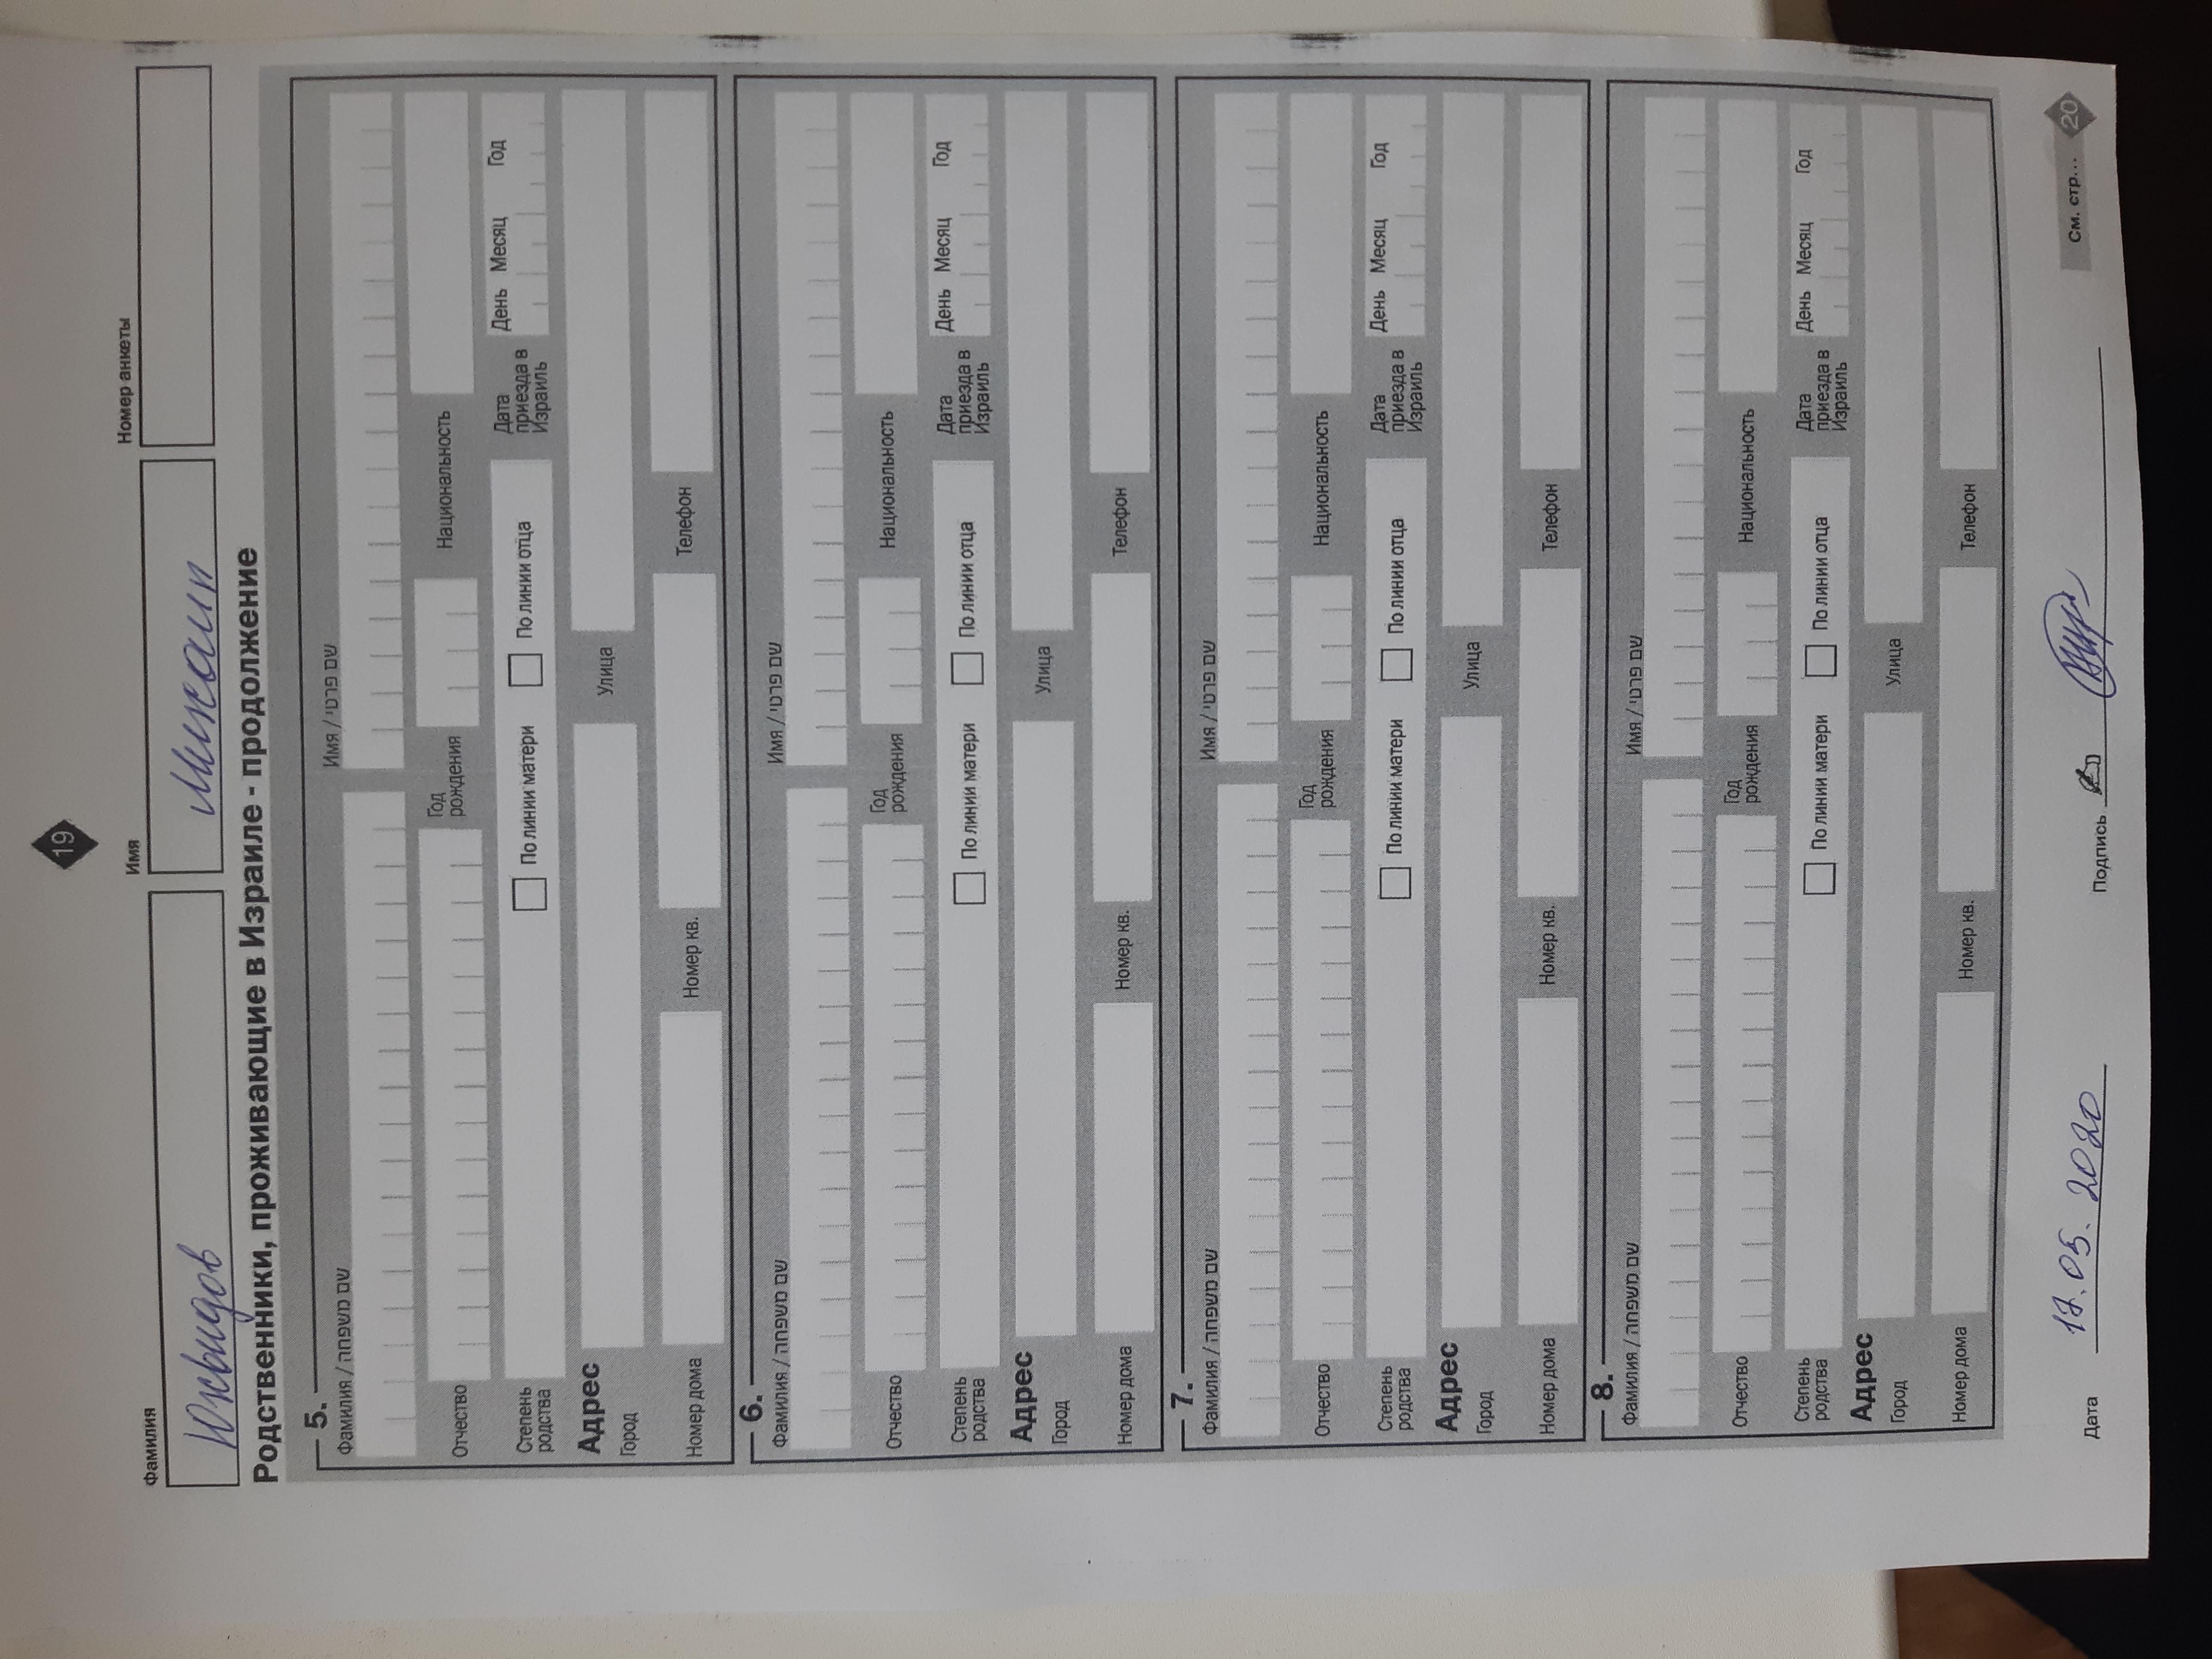 19
Фамилия Имя Номер анкеты
Юхвидов Михаил
Родственники, проживающие в Израиле - продолжение
5.
Фамилия / שם משפחה Имя / שם פרטי
Отчество Год рождения Национальность
Степень родства По линии матери По линии отца Дата приезда в Израиль День Месяц Год
Адрес
Город Улица
Номер дома Номер кв. Телефон
6.
Фамилия / שם משפחה Имя / שם פרטי
Отчество Год рождения Национальность
Степень родства По линии матери По линии отца Дата приезда в Израиль День Месяц Год
Адрес
Город Улица
Номер дома Номер кв. Телефон
7.
Фамилия / שם משפחה Имя / שם פרטי
Отчество Год рождения Национальность
Степень родства По линии матери По линии отца Дата приезда в Израиль День Месяц Год
Адрес
Город Улица
Номер дома Номер кв. Телефон
8.
Фамилия / שם משפחה Имя / שם פרטי
Отчество Год рождения Национальность
Степень родства По линии матери По линии отца Дата приезда в Израиль День Месяц Год
Адрес
Город Улица
Номер дома Номер кв. Телефон
Дата 17.05.2020 Подпись См. стр... 20